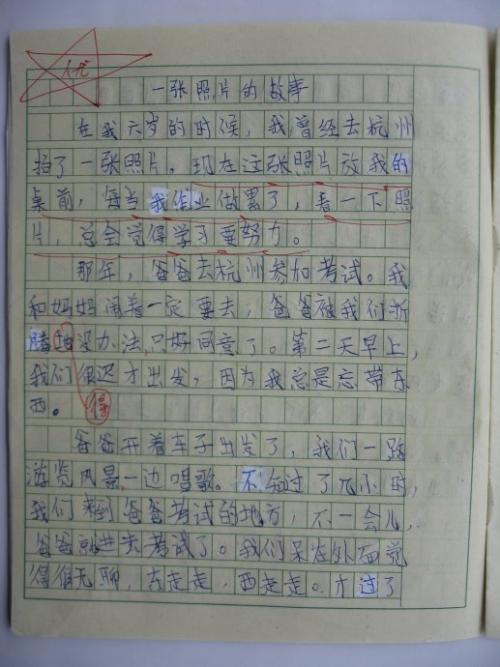 优
一张照片的故事
在我六岁的时候，我曾经去杭州
拍了一张照片，现在这张照片放我的
桌前，每当我作业做累了，看一下照
片，总会觉得学习要努力。
那年，爸爸去杭州参加考试。我
和妈妈闹着一定要去，爸爸被我们折
腾地没办法，只好同意了。第二天早上，
我们很迟才出发，因为我总是忘带东
西。
得
爸爸开着车子出发了，我们一路
游览风景一边唱歌。不知过了几小时，
我们来到爸爸考试的地方，不一会儿，
爸爸就进去考试了。我们呆在外面觉
得很无聊，东走走，西走走。才过了